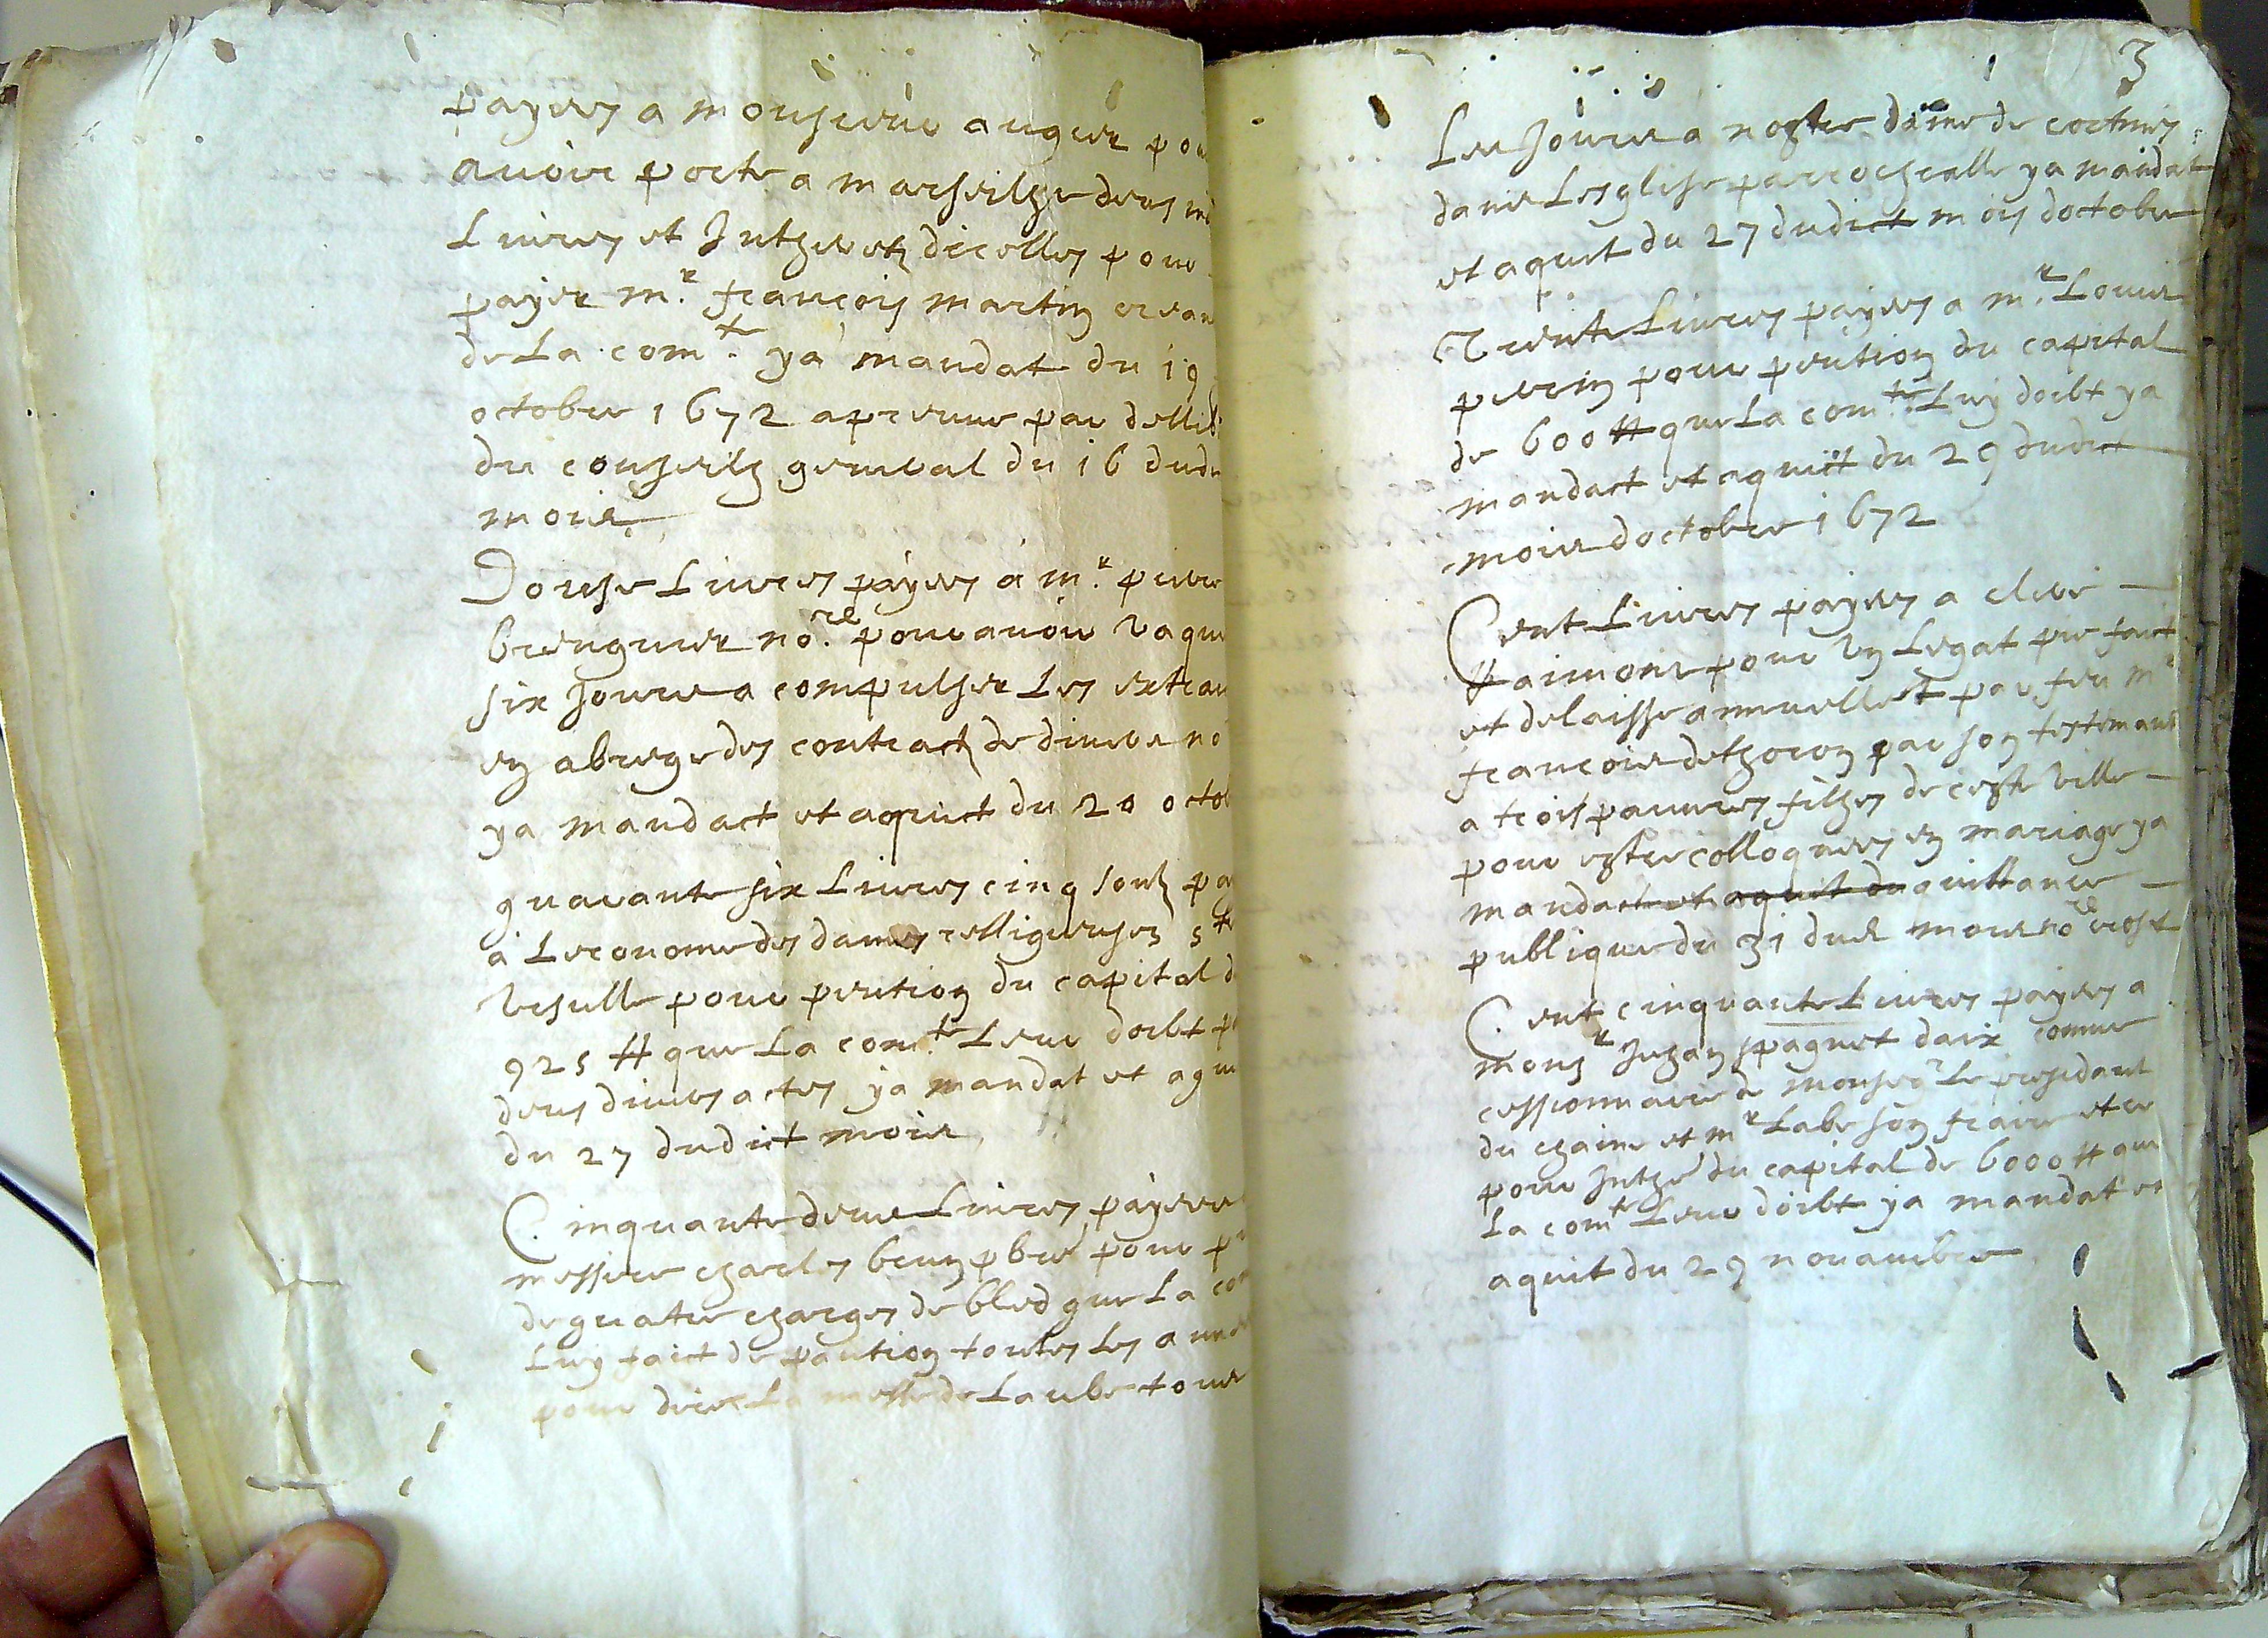 payees a monsieur auguer pou
avoir porte a marseilhe deus mil
Livres et Intherets dicelles pour
payer m.r françois martin crean
de La com.te ya mandat du 19
octobre 1672 apreuve par dellib
du conseilh general du 16 dudi
mois
Douse Livres payes a m.r pierre
brenguier no.re pour avoir vaque
six Jours a compulser Les extrai
en abrege des contracts de divers no
ya mandact et aquict du 20 octob
quarante six Livres cinq souls pay
a Leconome des dames relligieuses ste
Ursulle pour pention du capital d
925 ⌗ que La com.te Leur doibt p
deus divers actes ya mandat et aqui
du 27 dudict mois
Cinquante deus Livres payees
messire charles brun pbre pour p
de quatre charges de bled que La com
Luy faict de pantion toutes Les annes
pour dire La messe de Laube tous
3
Les Jours a nostre dame de
dans Lesglise parrochealle ya mandat
et aquit du 27 dudict mois doctobre
Trente Livres payes a m.r Louis
pierrin pour pention du capital
de 600 ⌗ que La com.te Luy doibt ya
mandact et aquitt du 29 dudict
mois doctobre 1672
Cent Livres payes a
pour un Legat pie faict
et delaisse annuellet par feu mr
francois dethoron par son testemant
a trois pauvres filhes de ceste ville
pour estre colloquees en mariage ya
mandact et aquit du quittance
publique du 31 dud mois nore
Cent cinquante Livres payes a
monsr Juhan spagnet daix comme
cessionnaire de monseigr Le presidant
du chaine et mr Labe son fraire et ce
pour Inthe du capital de 6000 ⌗ que
La comte Leur doibt ya mandat et
aquit du 29 novambre